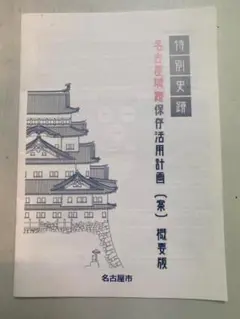 特別史跡
名古屋城跡保存活用計画（案）概要版
名古屋市